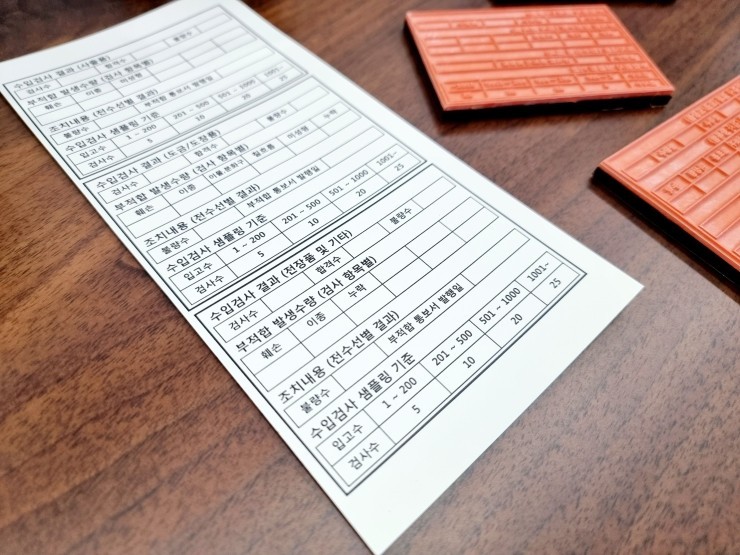 수입검사 결과 (사출품)
검사수 합격수 불량수
부적합 발생수량 (검사 항목별)
훼손 이종 미성형
조치내용 (전수선별 결과)
불량수 부적합 통보서 발행일
수입검사 샘플링 기준
입고수 1 ~ 200 201 ~ 500 501 ~ 1000 1001~
검사수 5 10 20 25
수입검사 결과 (도금/도장품)
검사수 합격수 불량수
부적합 발생수량 (검사 항목별)
훼손 이종 미성형 누락
조치내용 (전수선별 결과)
불량수 부적합 통보서 발행일
수입검사 샘플링 기준
입고수 1 ~ 200 201 ~ 500 501 ~ 1000 1001~
검사수 5 10 20 25
수입검사 결과 (전장품 및 기타)
검사수 합격수 불량수
부적합 발생수량 (검사 항목별)
훼손 이종 누락
조치내용 (전수선별 결과)
불량수 부적합 통보서 발행일
수입검사 샘플링 기준
입고수 1 ~ 200 201 ~ 500 501 ~ 1000 1001~
검사수 5 10 20 25